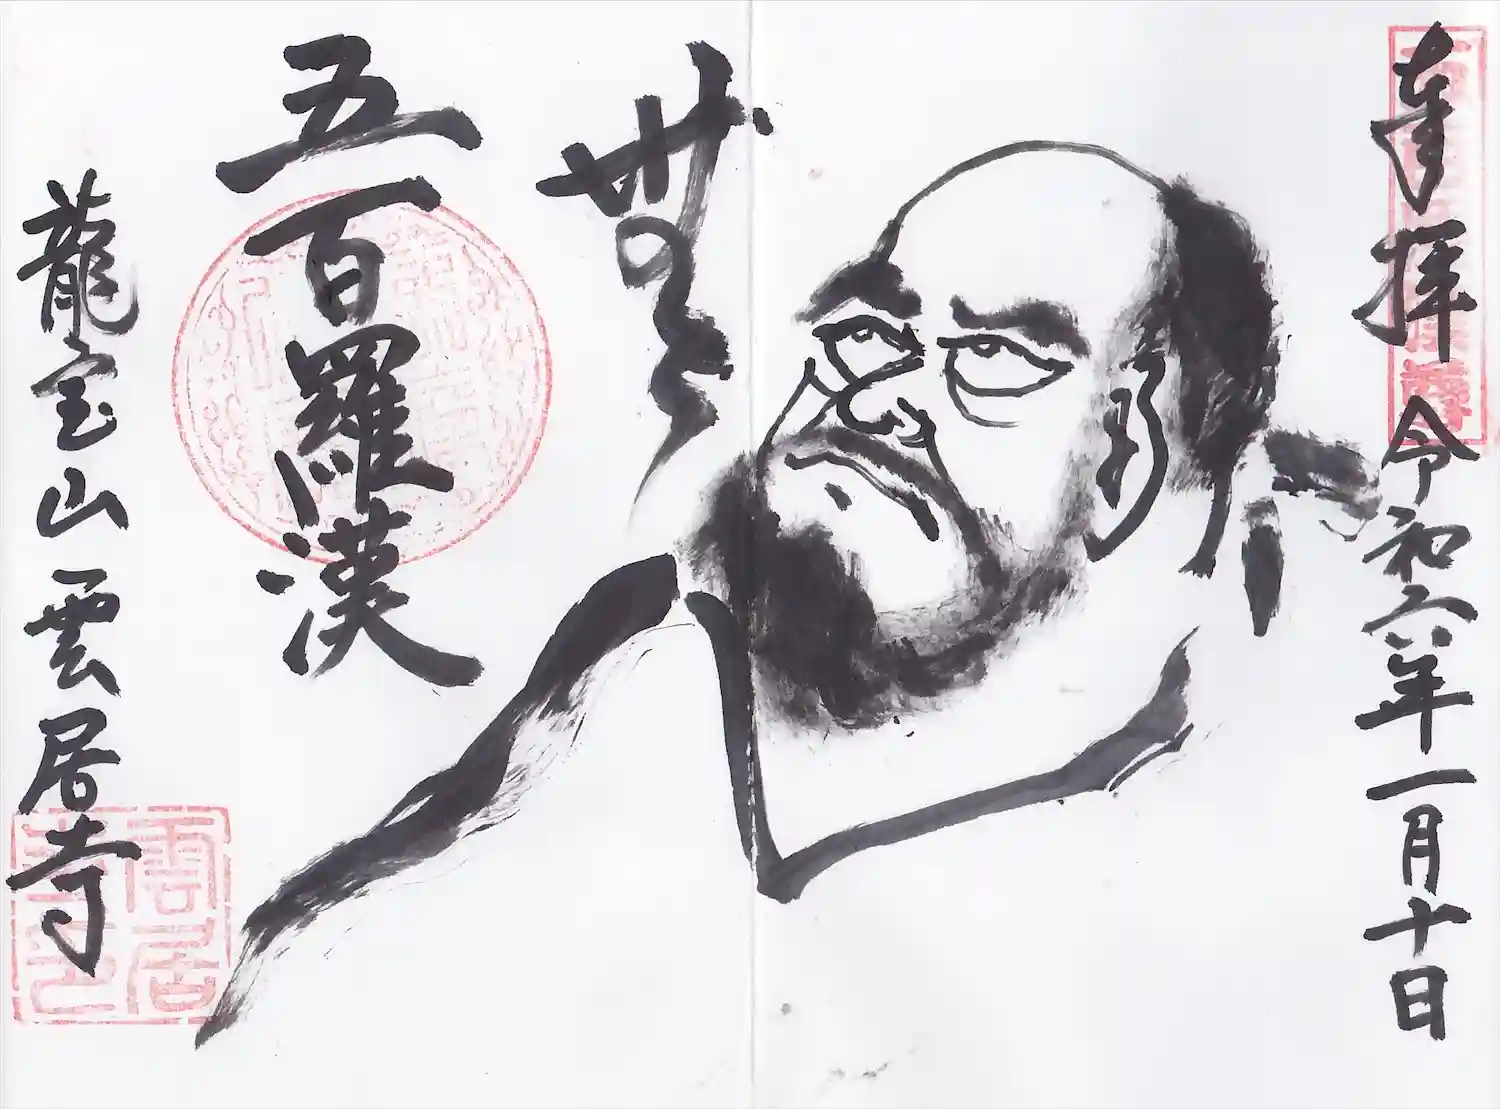 奉拝 令和六年一月十日
無
五百羅漢
龍宝山雲居寺
雲居寺印